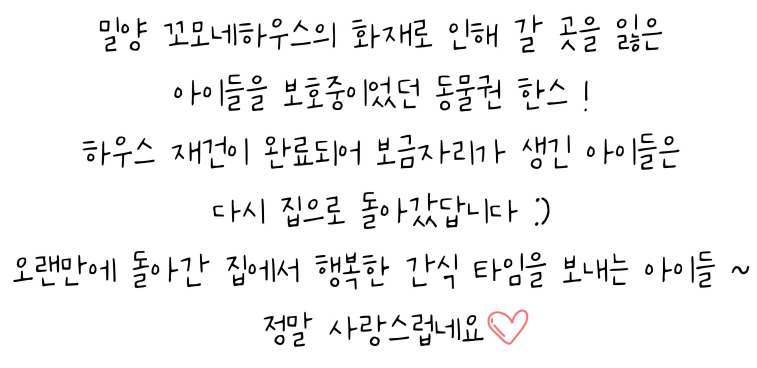 밀양 꼬모네하우스의 화재로 인해 갈 곳을 잃은
아이들을 보호중이었던 동물권 한스 !
하우스 재건이 완료되어 보금자리가 생긴 아이들은
다시 집으로 돌아갔답니다 :)
오랜만에 돌아간 집에서 행복한 간식 타임을 보내는 아이들 ~
정말 사랑스럽네요